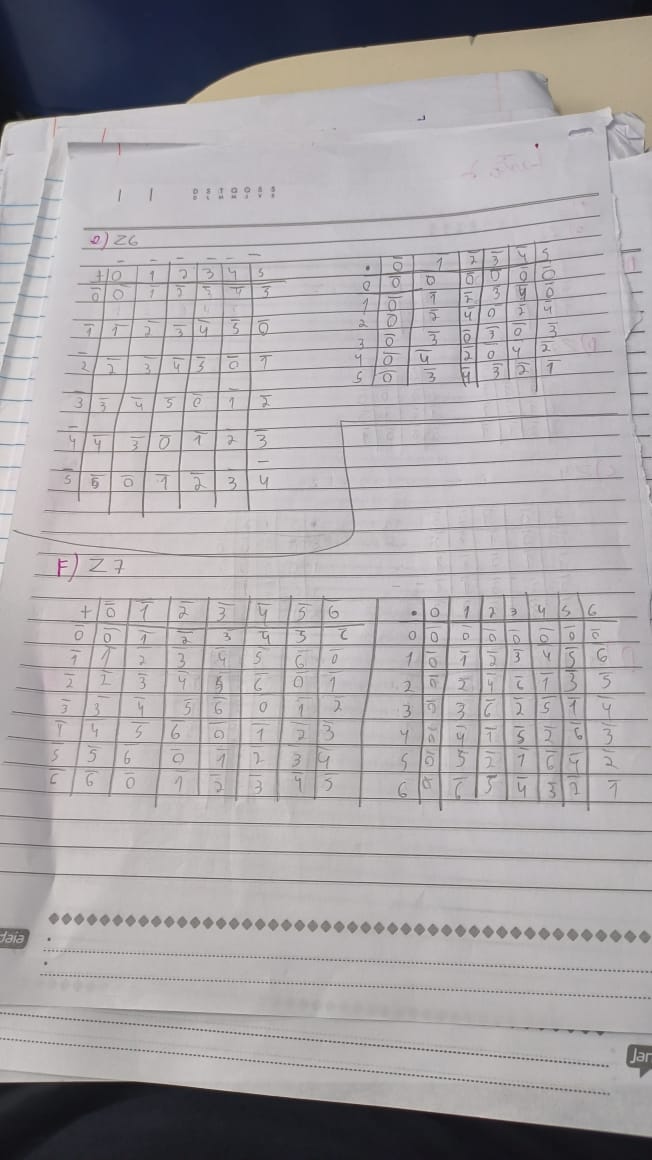 D S T Q Q S S
D L M M J V S
e) Z6
+ 0 1 2 3 4 5
0 0 1 2 3 4 5
1 1 2 3 4 5 0
2 2 3 4 5 0 1
3 3 4 5 0 1 2
4 4 3 0 1 2 3
5 5 0 1 2 3 4
• 0 1 2 3 4 5
0 0 0 0 0 0 0
1 0 1 2 3 4 0
2 0 2 4 0 2 4
3 0 3 0 3 0 3
4 0 4 2 0 4 2
5 0 3 4 3 2 1
F) Z7
+ 0 1 2 3 4 5 6
0 0 1 2 3 4 5 6
1 1 2 3 4 5 6 0
2 2 3 4 5 6 0 1
3 3 4 5 6 0 1 2
4 4 5 6 0 1 2 3
5 5 6 0 1 2 3 4
6 6 0 1 2 3 4 5
• 0 1 2 3 4 5 6
0 0 0 0 0 0 0 0
1 0 1 2 3 4 5 6
2 0 2 4 6 1 3 5
3 0 3 6 2 5 1 4
4 0 4 1 5 2 6 3
5 0 5 2 1 6 4 2
6 0 6 5 4 3 2 1
daia
Jan